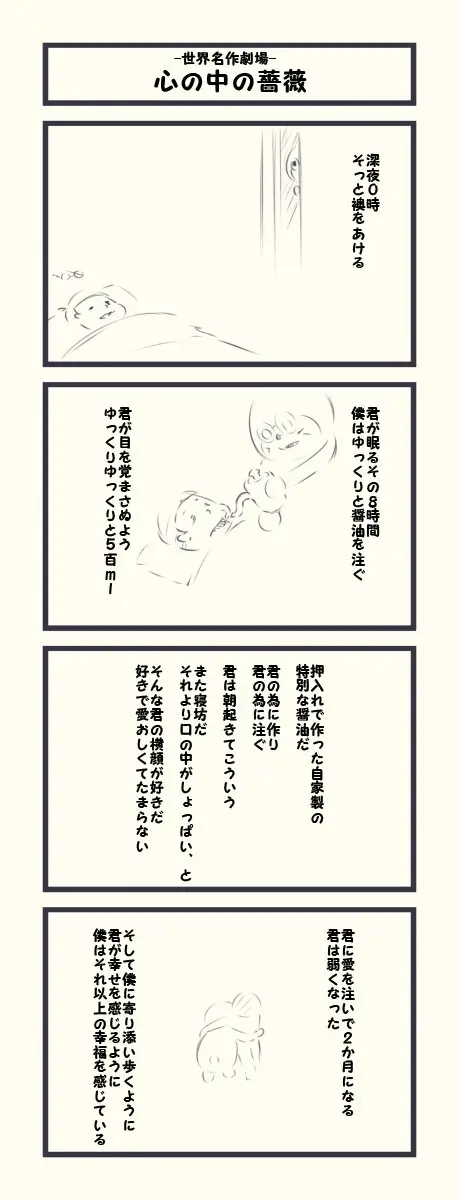 -世界名作劇場-
心の中の薔薇
深夜0時
そっと襖をあける
君が眠るその8時間
僕はゆっくりと醤油を注ぐ
君が目を覚まさぬよう
ゆっくりゆっくりと5百ml
押入れで作った自家製の
特別な醤油だ
君の為に作り
君の為に注ぐ
君は朝起きてこういう
また寝坊だ
それより口の中がしょっぱい、と
そんな君の横顔が好きだ
好きで愛おしくてたまらない
君に愛を注いで2か月になる
君は弱くなった
そして僕に寄り添い歩くように
君が幸せを感じるように
僕はそれ以上の幸福を感じている